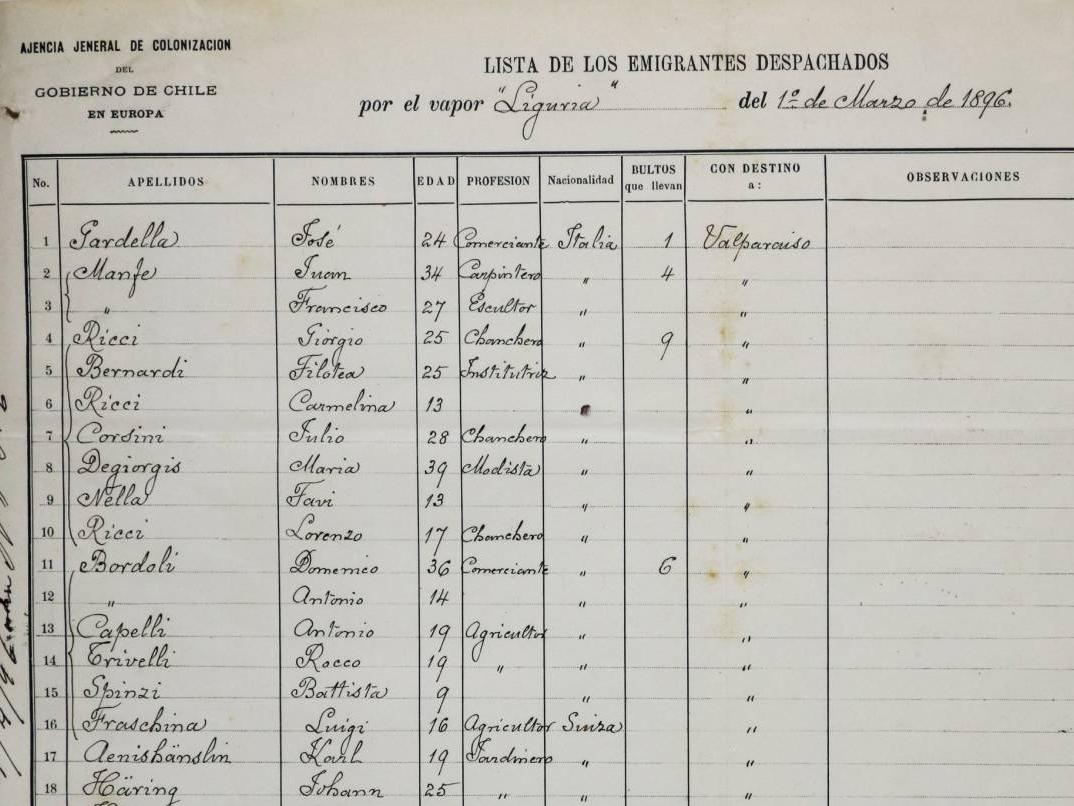 AJENCIA JENERAL DE COLONIZACION
DEL
GOBIERNO DE CHILE
EN EUROPA
LISTA DE LOS EMIGRANTES DESPACHADOS
por el vapor "Liguria" del 1º de Marzo de 1896.
No. APELLIDOS NOMBRES EDAD PROFESION Nacionalidad BULTOS que llevan CON DESTINO a: OBSERVACIONES
1 Gardella José 24 Comerciante Italia 1 Valparaiso
2 Manfe Juan 34 Carpintero " 4 "
3 " Francisco 27 Escultor " "
4 Ricci Giorgio 25 Chanchero " 9 "
5 Bernardi Filotea 25 Institutriz " "
6 Ricci Carmelina 13 "
7 Corsini Julio 28 Chanchero " "
8 Degiorgis Maria 39 Modista " "
9 Nella Favi 13 " "
10 Ricci Lorenzo 17 Chanchero " "
11 Bordoli Domenico 36 Comerciante " 6 "
12 " Antonio 14 " "
13 Capelli Antonio 19 Agricultor " "
14 Trivelli Rocco 19 " " "
15 Spinzi Battista 9 " "
16 Fraschina Luigi 16 Agricultor Suiza "
17 Aenishänslin Karl 19 Jardinero " "
18 Häring Johann 25 " " "